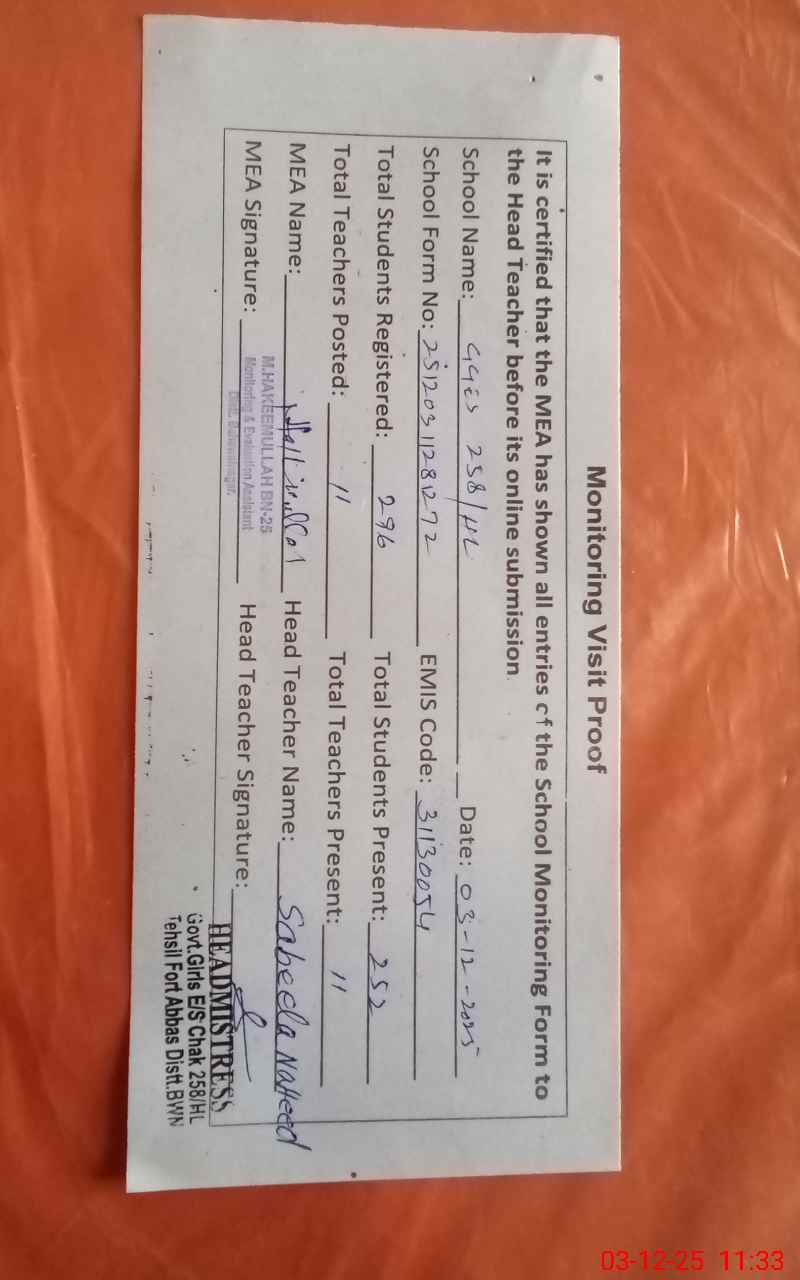 Monitoring Visit Proof
It is certified that the MEA has shown all entries of the School Monitoring Form to
the Head Teacher before its online submission.
School Name: GGES 258/HL Date: 03-12-2025
School Form No: 25120311281272 EMIS Code: 31130054
Total Students Registered: 296 Total Students Present: 252
Total Teachers Posted: 11 Total Teachers Present: 11
MEA Name: Head Teacher Name: Sabeela Naheed
MEA Signature: Head Teacher Signature:
M.HAKEEMULLAH BN-25
Monitoring & Evaluation Assistant
Distt. Bahawalnagar.
HEADMISTRESS
Govt.Girls E/S Chak 258/HL
Tehsil Fort Abbas Distt.BWN
03-12-25 11:33